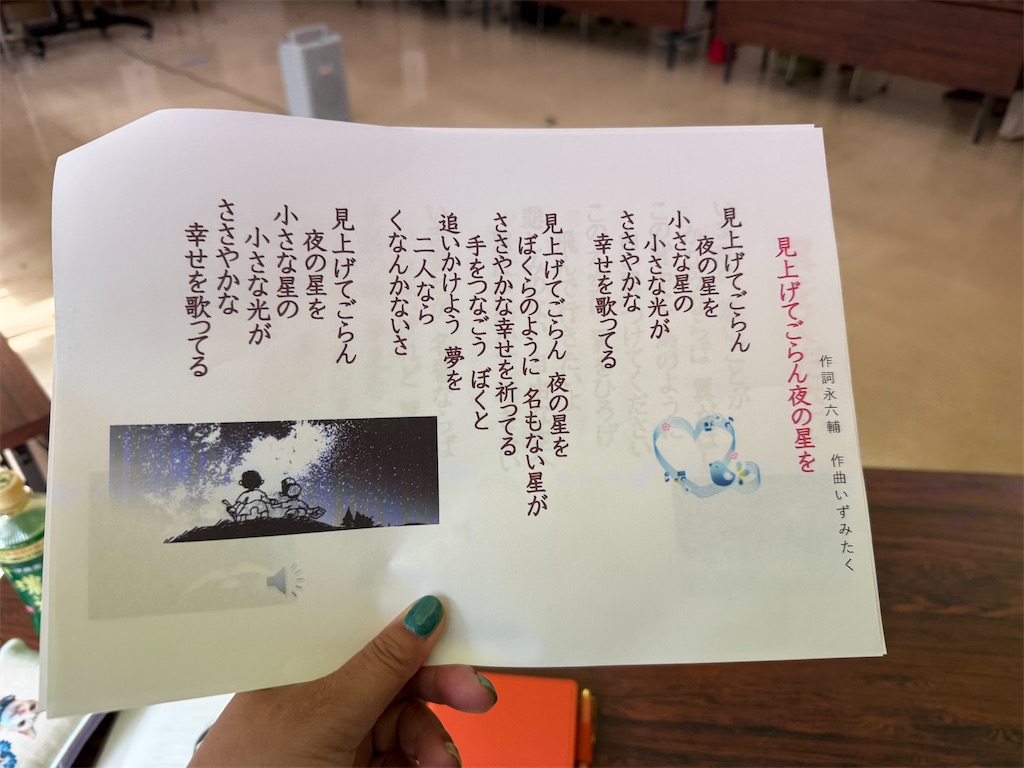 作詞永六輔　作曲いずみたく
見上げてごらん夜の星を
見上げてごらん
夜の星を
小さな星の
小さな光が
ささやかな
幸せを歌ってる
見上げてごらん 夜の星を
ぼくらのように 名もない星が
ささやかな幸せを祈ってる
手をつなごう ぼくと
追いかけよう 夢を
二人なら
くなんかないさ
見上げてごらん
夜の星を
小さな星の
小さな光が
ささやかな
幸せを歌ってる